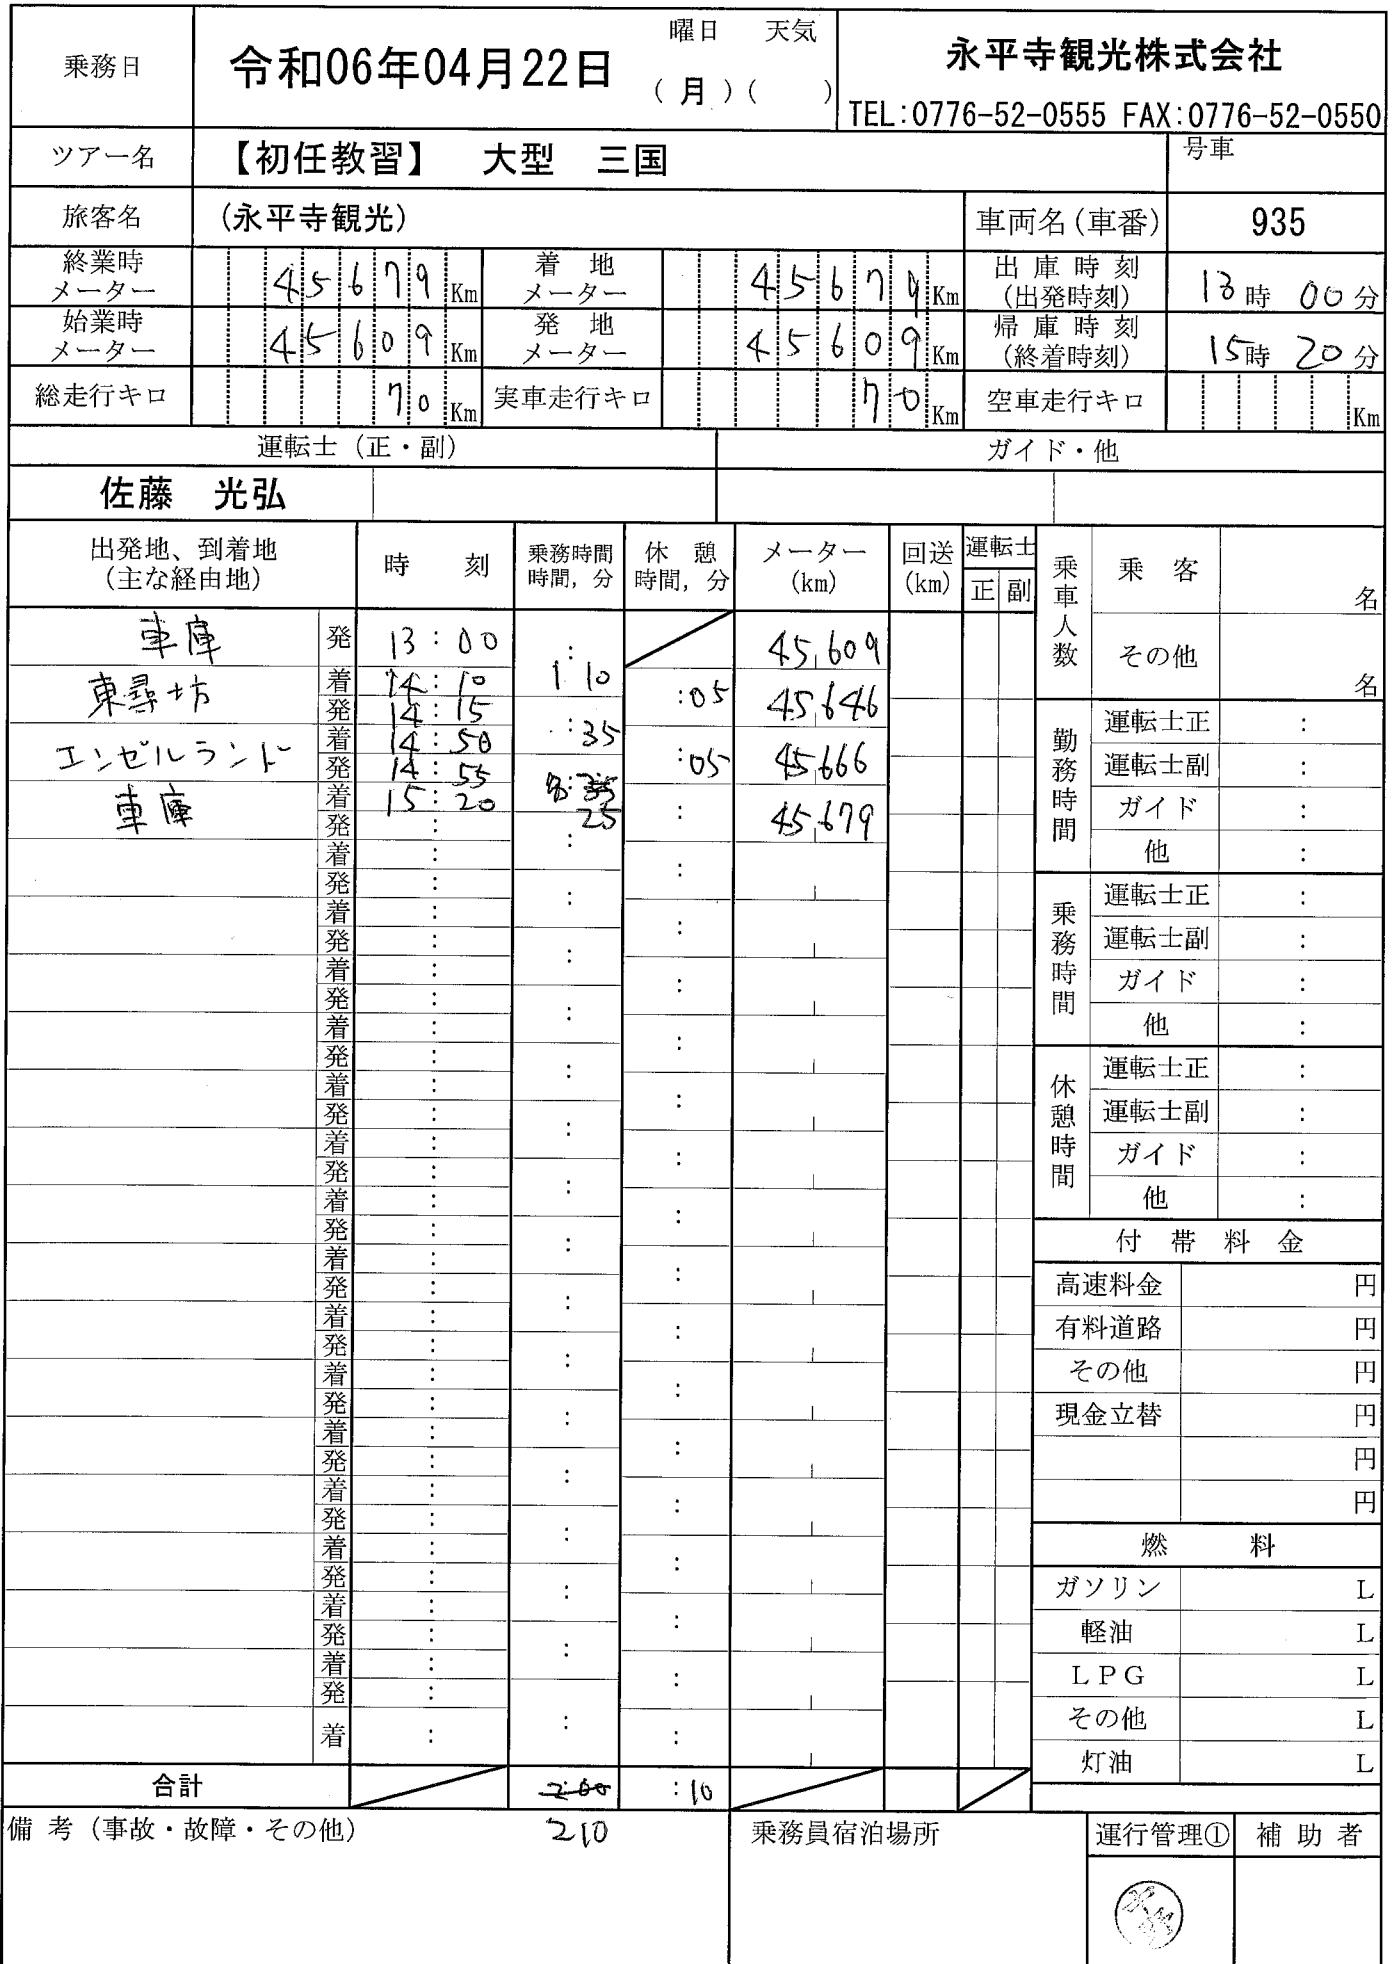 乗務日 令和06年04月22日 曜日 天気
(月)( )
永平寺観光株式会社
TEL:0776-52-0555 FAX:0776-52-0550
ツアー名 【初任教習】 大型 三国 号車
旅客名 (永平寺観光) 車両名(車番) 935
終業時メーター 45679 Km 着地メーター 45679 Km 出庫時刻(出発時刻) 13時00分
始業時メーター 45609 Km 発地メーター 45609 Km 帰庫時刻(終着時刻) 15時20分
総走行キロ 70 Km 実車走行キロ 70 Km 空車走行キロ Km
運転士(正・副) ガイド・他
佐藤 光弘
出発地、到着地(主な経由地) 時刻 乗務時間 時間,分 休憩 時間,分 メーター(km) 回送(km) 運転士 正 副
車庫 発 13:00 45,609
1:10
東尋坊 着 14:10 :05 45,646
発 14:15
:35
エンゼルランド 着 14:50 :05 45,666
発 14:55
25
車庫 着 15:20 : 45,679
発 :
着 :
発 :
着 :
発 :
着 :
発 :
着 :
発 :
着 :
発 :
着 :
発 :
着 :
発 :
着 :
発 :
着 :
発 :
着 :
発 :
着 :
発 :
着 :
発 :
着 :
発 :
着 :
発 :
着 :
発 :
着 :
合計 2:00 :10
210
乗車人数 乗客 名
その他 名
勤務時間 運転士正 :
運転士副 :
ガイド :
他 :
乗務時間 運転士正 :
運転士副 :
ガイド :
他 :
休憩時間 運転士正 :
運転士副 :
ガイド :
他 :
付帯料金
高速料金 円
有料道路 円
その他 円
現金立替 円
円
円
燃料
ガソリン L
軽油 L
LPG L
その他 L
灯油 L
備考(事故・故障・その他) 乗務員宿泊場所 運行管理① 補助者